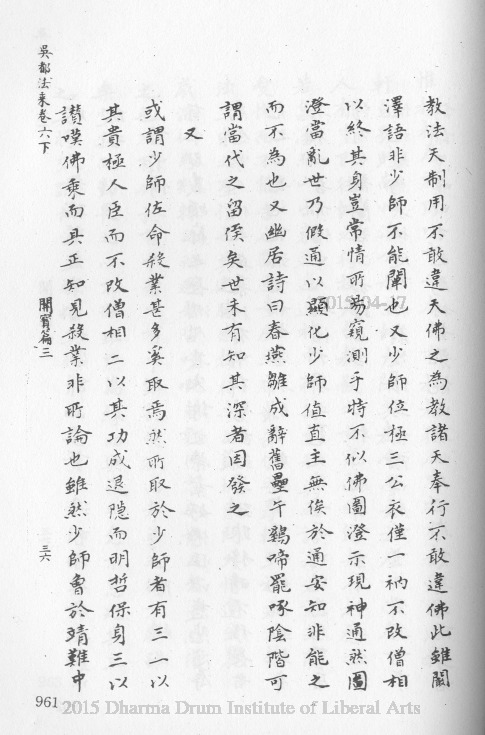 教法天制用不敢違天佛之為教諸天奉行不敢違佛此雖闢
澤語非少師不能闡也又少師位極三公衣僅一衲不改僧相
以終其身豈常情所易窺測乎時不似佛圖澄示現神通然圖
澄當亂世乃假通以顯化少師值直主無俟於通安知非能之
而不為也又幽居詩曰春燕雛成辭舊壘午鷄啼罷啄陰階可
謂當代之留侯矣世未有知其深者因發之
又
或謂少師佐命殺業甚多奚取焉然所取於少師者有三一以
其貴極人臣而不改僧相二以其功成退隱而明哲保身三以
讚嘆佛乘而具正知見殺業非所論也雖然少師曾於靖難中
吳都法乘卷六下
開賓篇三
三六
961
2015-04-17
2015 Dharma Drum Institute of Liberal Arts